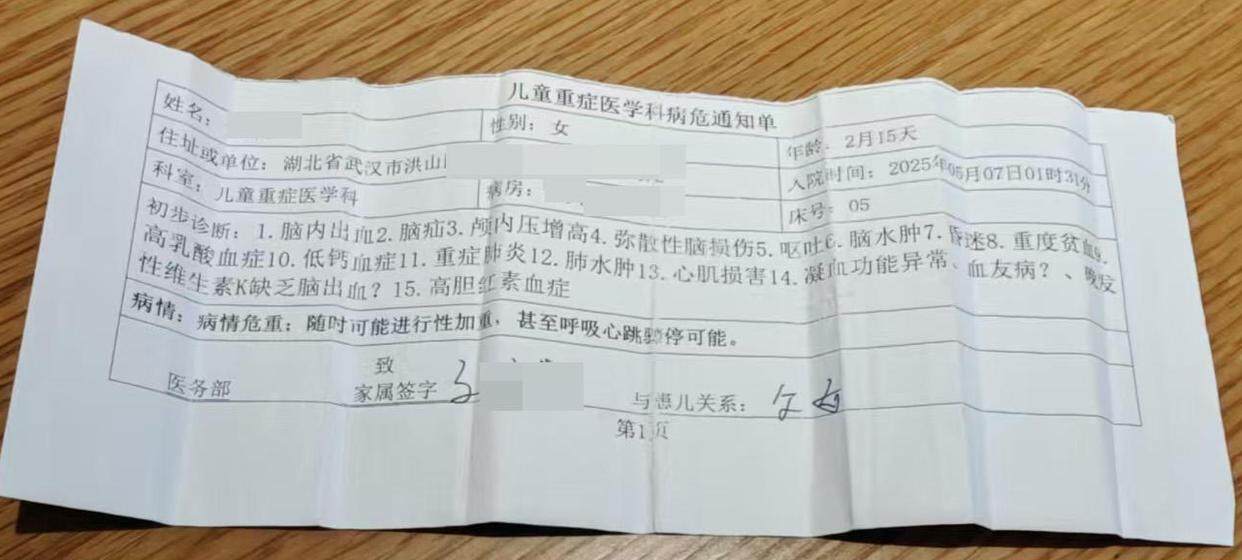 儿童重症医学科病危通知单
姓名： 性别：女 年龄：2月15天
住址或单位：湖北省武汉市洪山 入院时间：2025年05月07日01时31分
科室：儿童重症医学科 病房： 床号：05
初步诊断：1.脑内出血2.脑疝3.颅内压增高4.弥散性脑损伤5.呕吐6.脑水肿7.昏迷8.重度贫血9.
高乳酸血症10.低钙血症11.重症肺炎12.肺水肿13.心肌损害14.凝血功能异常、血友病？、晚发
性维生素K缺乏脑出血？15.高胆红素血症
病情：病情危重；随时可能进行性加重，甚至呼吸心跳骤停可能。
致
医务部 家属签字 与患儿关系：父女
第1页